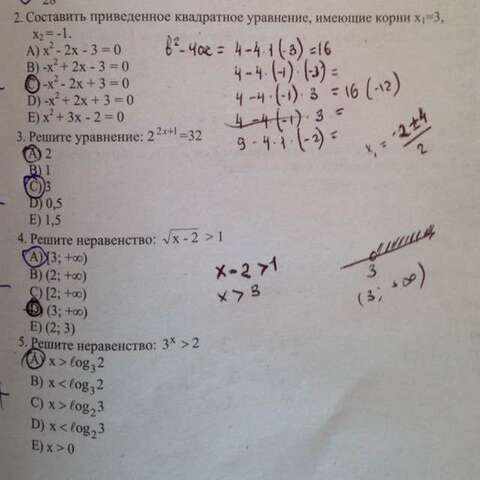 2. Составить приведенное квадратное уравнение, имеющие корни x₁=3,
x₂= -1.
A) x² - 2x - 3 = 0
B) -x² + 2x - 3 = 0
C) -x² - 2x + 3 = 0
D) -x² + 2x + 3 = 0
E) x² + 3x - 2 = 0
b² - 4ac = 4 - 4·1·(-3) = 16
4 - 4·(-1)·(-3) =
4 - 4·(-1)·3 = 16 (-12)
4 - 4·(-1)·3 =
9 - 4·1·(-2) =
x₁ = -2±4/2
3. Решите уравнение: 2²ˣ⁺¹=32
A) 2
B) 1
C) 3
D) 0,5
E) 1,5
4. Решите неравенство: √x - 2 > 1
A) (3; +∞)
B) (2; +∞)
C) [2; +∞)
D) (3; +∞)
E) (2; 3)
x - 2 > 1
x > 3
3
(3; +∞)
5. Решите неравенство: 3ˣ > 2
A) x > ℓog₃2
B) x < ℓog₃2
C) x > ℓog₂3
D) x < ℓog₂3
E) x > 0